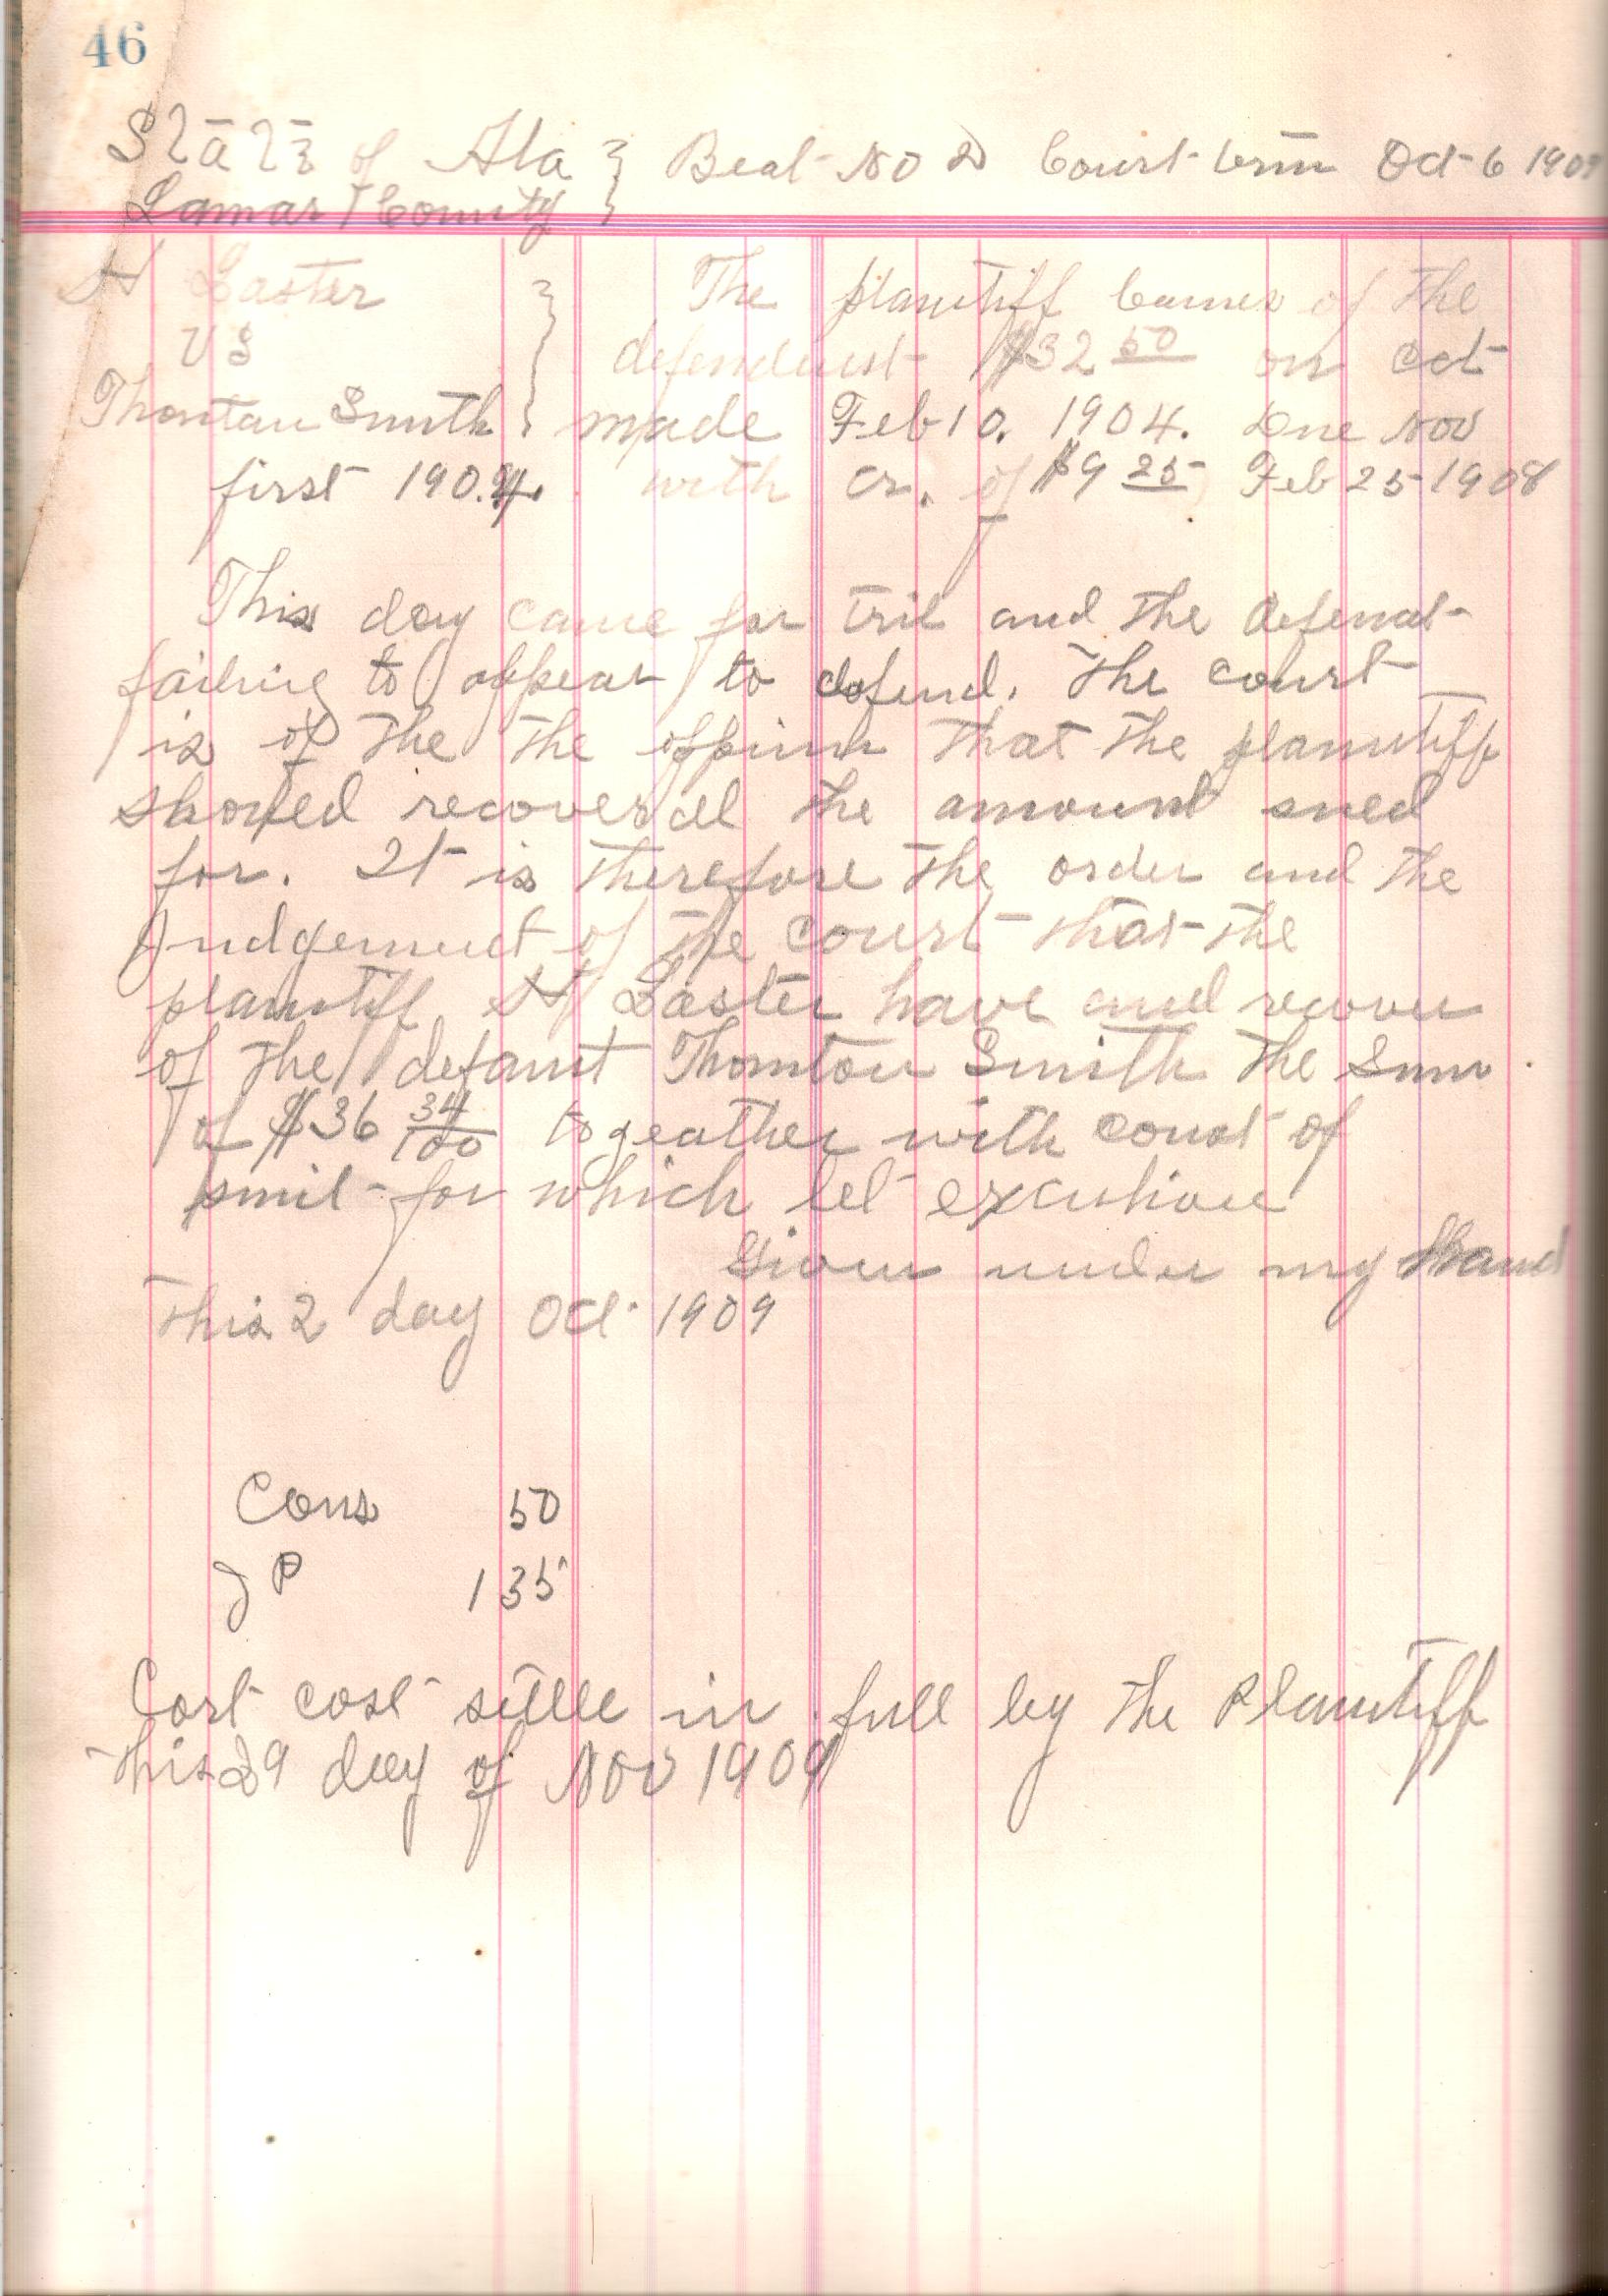 46
State of Ala } Beat No 2 Court term Oct 6 1909
Lamar County }
H Laster } The plantiff clames of the
VS defendant $32 50 on act
Thontan Smith } made Feb 10. 1904. Due Nov
first 1904. with cr. of $9 25 Feb 25 1908
This day came for tril and the defenat
failing to appear to defend. The court
is of the the oppinin that the plantiff
shoued recover the amount sued
for. It is therefore the order and the
Judgement of the court that the
plantiff H Laster have and recover
of the defant Thomton Smith the Sum
of $36 34/100 togeather with coust of
suit for which let excution
Given under my Hand
This 2 day Oct 1909
Cons 50
J P 1 35
Cort cost settle in full by the Plantiff
This 29 day of Nov 1909